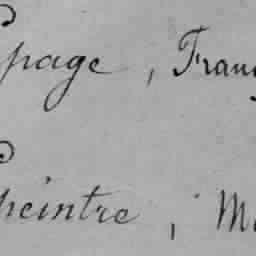 page, Fran
peintre, M